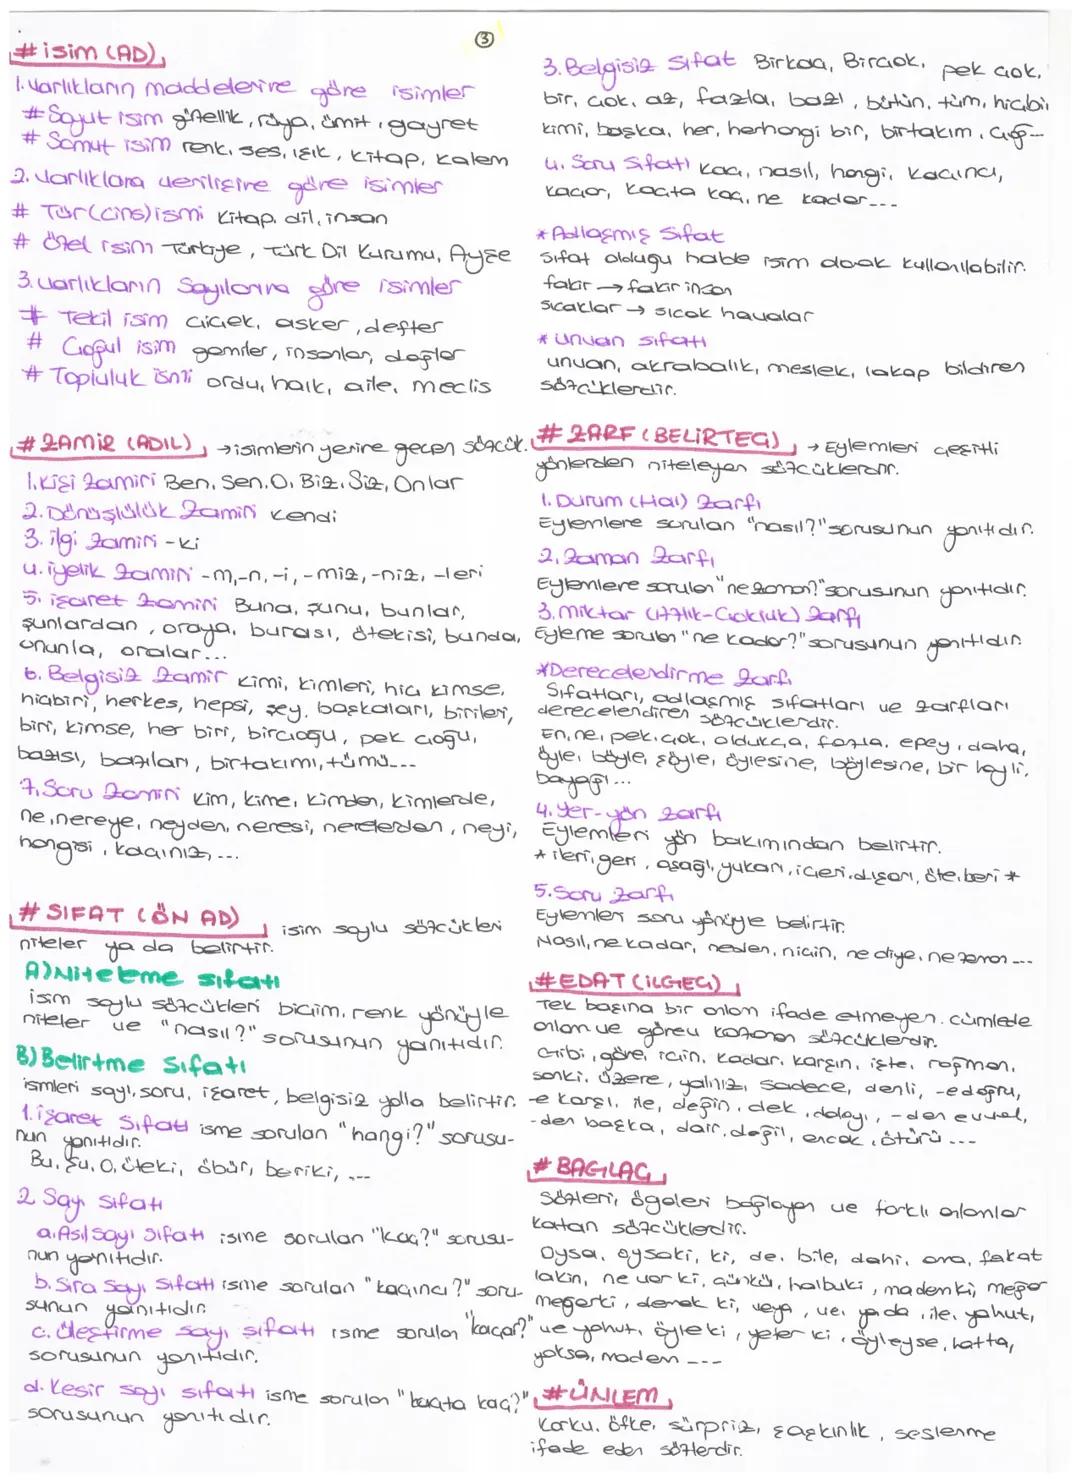 ③
# isim (AD)
1. Varlıkların maddelerine göre isimler
# Soyut isim güzellik, rüya, ümit, gayret
# Somut isim renk, ses, ışık, kitap, kalem
2. Varlıklara verilişine göre isimler
# Tür (cins) ismi kitap, dil, insan
# Özel isim Türkiye, Türk Dil Kurumu, Ayşe
3. Varlıkların Sayılarına göre isimler
# Tekil isim çiçek, asker, defter
# Çoğul isim gemiler, insanlar, dağlar
# Topluluk ismi ordu, halk, aile, meclis
# ZAMİR (ADIL) → isimlerin yerine geçen sözcük.
1. Kişi Zamiri Ben, Sen, O, Biz, Siz, Onlar
2. Dönüşlülük Zamiri kendi
3. ilgi Zamiri -ki
4. iyelik Zamiri -m, -n, -i, -miz, -niz, -leri
5. işaret Zamiri Buna, şunu, bunlar,
şunlardan, oraya, burası, ötekisi, bunda,
onunla, oralar...
6. Belgisiz Zamir kimi, kimleri, hiç kimse,
hiçbiri, herkes, hepsi, şey, başkaları, birileri,
biri, kimse, her biri, birçoğu, pek çoğu,
bazısı, bazıları, birtakımı, tümü...
7. Soru Zamiri kim, kime, kimden, kimlerde,
ne, nereye, neyden, neresi, nerelerden, neyi,
hangisi, kaçınız, ...
# SIFAT (ÖN AD) isim soylu sözcükleri
niteler ya da belirtir.
A) Niteleme sıfatı
isim soylu sözcükleri biçim, renk yönüyle
niteler ve "nasıl?" sorusunun yanıtıdır.
B) Belirtme Sıfatı
isimleri sayı, soru, işaret, belgisiz yolla belirtir.
1. işaret Sıfatı isme sorulan "hangi?" sorusu-
nun yanıtıdır.
Bu, Şu, O, öteki, öbür, beriki, ...
2 Sayı sıfatı
a. Asıl sayı sıfatı isme sorulan "kaç?" sorusu-
nun yanıtıdır.
b. Sıra Sayı Sıfatı isme sorulan "kaçıncı?" soru-
sunun yanıtıdır.
c. Üleştirme sayı sıfatı isme sorulan "kaçar?"
sorusunun yanıtıdır.
d. Kesir sayı sıfatı isme sorulan "kaçta kaç?"
sorusunun yanıtıdır.
3. Belgisiz Sıfat Birkaç, Birçok, pek çok,
bir, çok, az, fazla, bazı, bütün, tüm, hiçbir
kimi, başka, her, herhangi bir, birtakım, çoğ...
4. Soru Sıfatı kaç, nasıl, hangi, kaçıncı,
kaçar, kaçta kaç, ne kadar...
* Adlaşmış Sıfat
Sıfat olduğu halde isim olarak kullanılabilir.
fakir → fakir insan
sıcaklar → sıcak havalar
* unvan sıfatı
unvan, akrabalık, meslek, lakap bildiren
sözcüklerdir.
# ZARF (BELİRTEÇ) → Eylemleri çeşitli
yönlerden niteleyen sözcüklerdir.
1. Durum (Hal) Zarfı
Eylemlere sorulan "nasıl?" sorusunun yanıtıdır.
2. Zaman Zarfı
Eylemlere sorulan "ne zaman?" sorusunun yanıtıdır.
3. Miktar (Azlık-Çokluk) Zarfı
Eyleme sorulan "ne kadar?" sorusunun yanıtıdır.
* Derecelendirme Zarfı
Sıfatları, adlaşmış sıfatları ve zarfları
derecelendiren sözcüklerdir.
En, ne, pek, çok, oldukça, fazla, epey, daha,
öyle, böyle, şöyle, öylesine, böylesine, bir hayli,
bayağı...
4. Yer-yön zarfı
Eylemleri yön bakımından belirtir.
* ileri, geri, aşağı, yukarı, içeri, dışarı, öte, beri *
5. Soru zarfı
Eylemleri soru yönüyle belirtir.
Nasıl, ne kadar, neden, niçin, ne diye, ne zaman ...
# EDAT (İLGEÇ)
Tek başına bir anlam ifade etmeyen, cümlede
anlam ve görev kazanan sözcüklerdir.
Gibi, göre, için, kadar, karşın, işte, rağmen,
sanki, üzere, yalnız, sadece, denli, -e doğru,
-e karşı, ile, değin, dek, dolayı, -den evvel,
-den başka, dair, değil, ancak, ötürü ...
# BAĞLAÇ
Sözleri, ögeleri bağlayan ve farklı anlamlar
katan sözcüklerdir.
Oysa, oysaki, ki, de, bile, dahi, ama, fakat
lakin, ne var ki, çünkü, halbuki, mademki, meğer
meğerki, demek ki, veya, ve, ya da, ile, yahut,
ve yahut, öyle ki, yeter ki, öyleyse, hatta,
yoksa, madem ...
# ÜNLEM
Korku, öfke, sürpriz, şaşkınlık, seslenme
ifade eden sözlerdir.